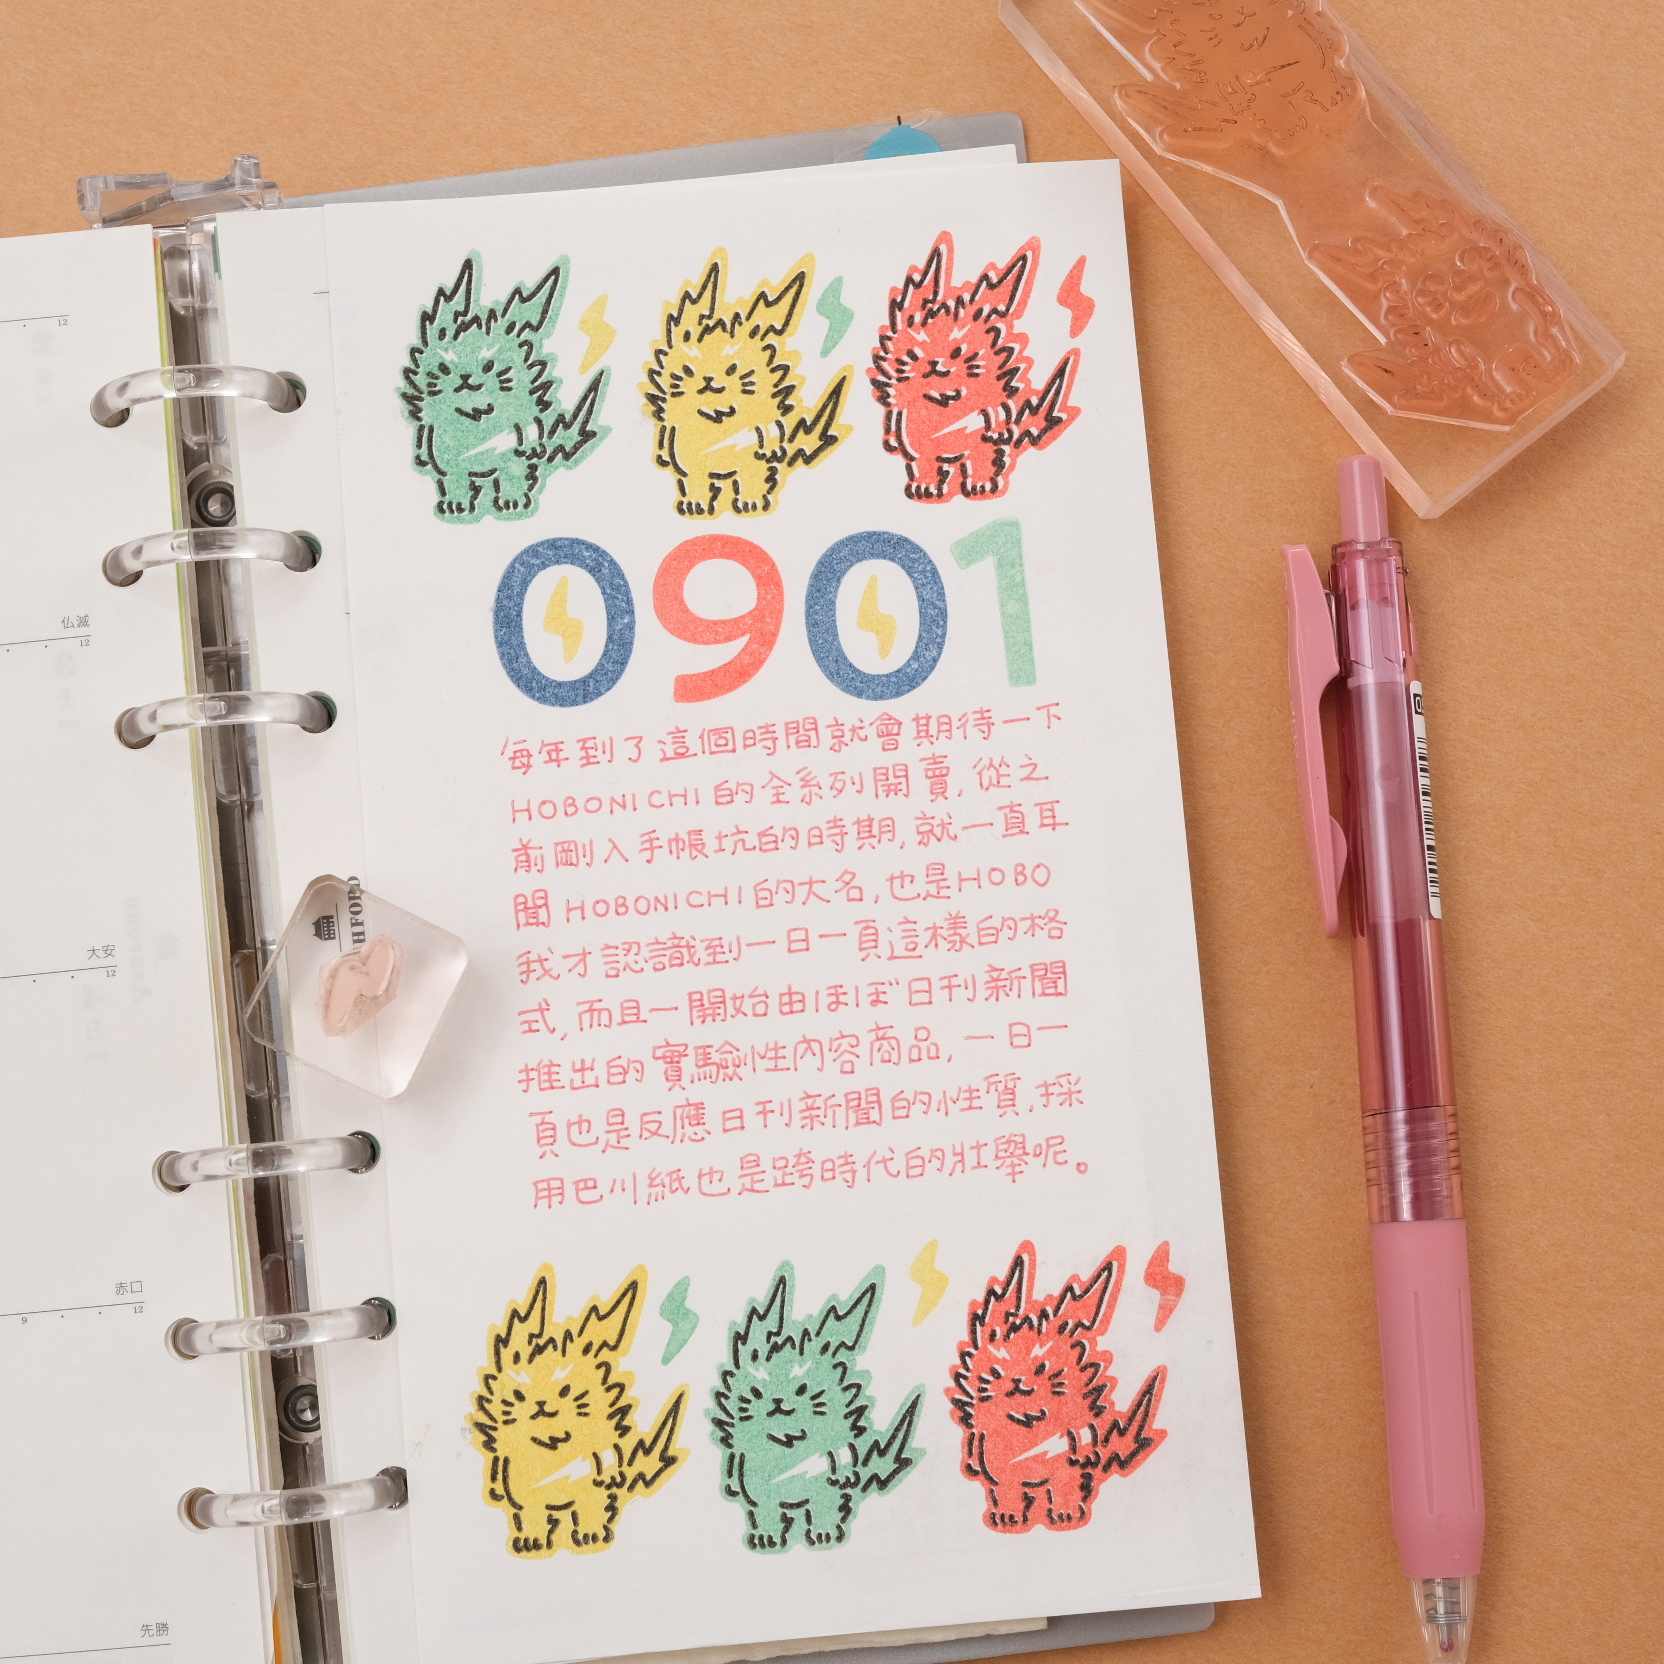 0901
每年到了這個時間就會期待一下
HOBONICHI的全系列開賣,從之
前剛入手帳坑的時期,就一直耳
聞HOBONICHI的大名,也是HOBO
我才認識到一日一頁這樣的格
式,而且一開始由ほぼ日刊新聞
推出的實驗性內容商品,一日一
頁也是反應日刊新聞的性質,採
用巴川紙也是跨時代的壯舉呢。
12
仏滅
12
大安
12
赤口
9
12
先勝